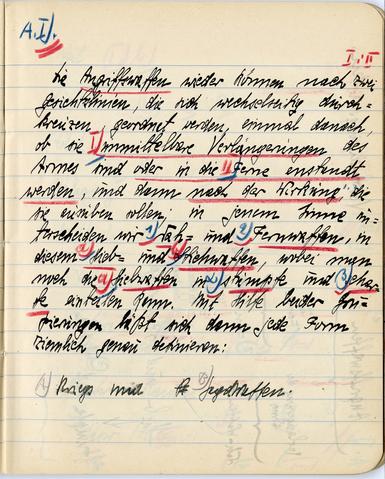 A. I).
I. : II
Die Angriffswaffen wieder können nach zwei
gerichtslinien, die sich wechselseitig durch-
kreuzen, geordnet werden, einmal danach,
ob sie I) unmittelbare Verlängerungen des
Armes sind oder in die II) Ferne entsandt
werden, und dann nach der Wirkung die
sie ausüben sollen, in jenem Sinne un-
terscheiden wir 1) Nah- und 2) Fernwaffen, in
diesem 1) Hieb- und 2) Stichwaffen, wobei man
noch die Hiebwaffen in stumpfe und scharf-
fe einteilen kann. Mit Hilfe beider Grup-
pierungen läßt sich dann jede Form
ziemlich genau definieren:
A) Kriegs und B) Jagdwaffen.